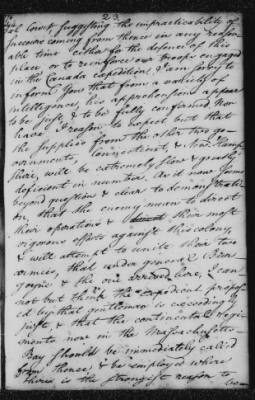 23
ral Court, suggesting the impracticability of
succours coming from thence in any reason
able time either for the defence of this
place or to reinforce our troops engaged
in the Canada expedition. I am sorry to
inform You that from a variety of
intelligence, his apprehensions appear
to be just, & to be fully confirmed Nor
have I reason to expect but that
the supplies from the other two go
vernments, Connecticut, & New Hamp
shire, will be extremely slow & greatly
deficient in number. As it now seems
beyond question & clear to demonstrati
on, that the enemy mean to direct
their operations & their most
vigorous efforts against this colony,
& will attempt to unite their two
armies, that under general Bur
goyne & the one arrived here, I can
not but think the expedient propos
ed by that gentleman is exceedingly
just, & that the continental regi
ments now in the Massachusetts
Bay should be immediately call'd
from thence & be employed where
there is the strongest reason to